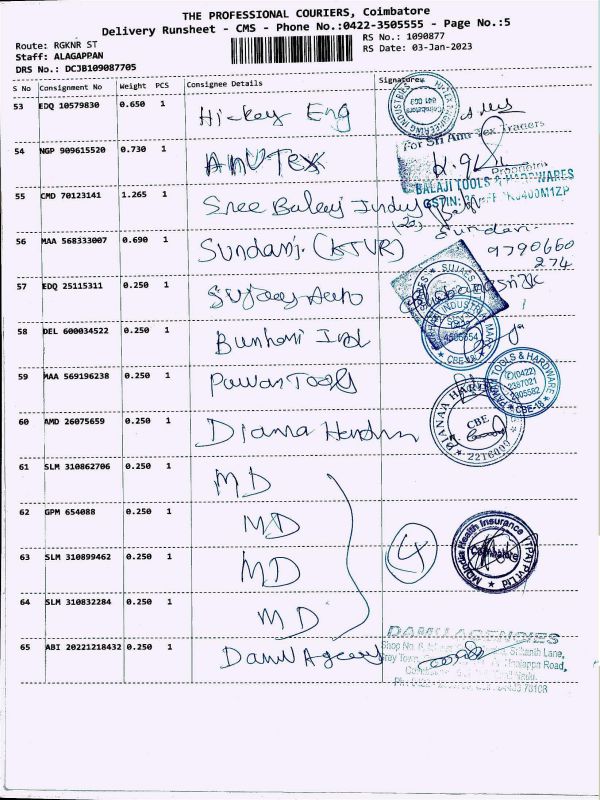 THE PROFESSIONAL COURIERS, Coimbatore
Delivery Runsheet - CMS - Phone No.:0422-3505555 - Page No.:5
Route: RGKNR ST
Staff: ALAGAPPAN
DRS No.: DCJB109087705
RS No.: 1090877
RS Date: 03-Jan-2023
S No Consignment No Weight PCS Consignee Details Signature
53 EDQ 10579830 0.650 1 Hickey Eng
54 NGP 909615520 0.730 1 ANUTEX
For Sri Anu Tex Traders
Proprietor
55 CMD 70123141 1.265 1 Sree Balaji
BALAJI TOOLS & HARDWARES
GSTIN:
56 MAA 568333007 0.690 1 Sundari. (KTVR)
Sundari
9790660
274
57 EDQ 25115311 0.250 1 Sujaay Auto
58 DEL 600034522 0.250 1 Ind
4506354
CBE-18
59 MAA 569196238 0.250 1 Pawan Tools
PAWAN TOOLS & HARDWARE
(0422)
2387021
CBE-18
60 AMD 26075659 0.250 1 Diana
DIANAA
CBE
61 SLM 310862706 0.250 1 MD
62 GPM 654088 0.250 1 MD
63 SLM 310899462 0.250 1 MD
4
MDIndia Health Insurance (TPA) Pvt Ltd
Coimbatore
64 SLM 310832284 0.250 1 MD
65 ABI 20221218432 0.250 1 Damu Agency
DAMU AGENCIES
Shop No. Srikanth Lane,
Road,